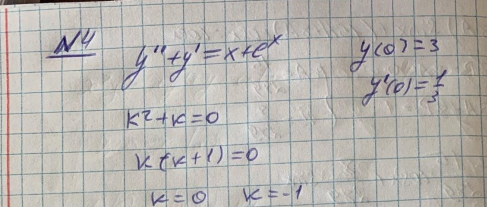 №4
y'' + y' = x + e^x   y(0) = 3
y'(0) = 1/3
k² + k = 0
k(k+1) = 0
k = 0   k = -1